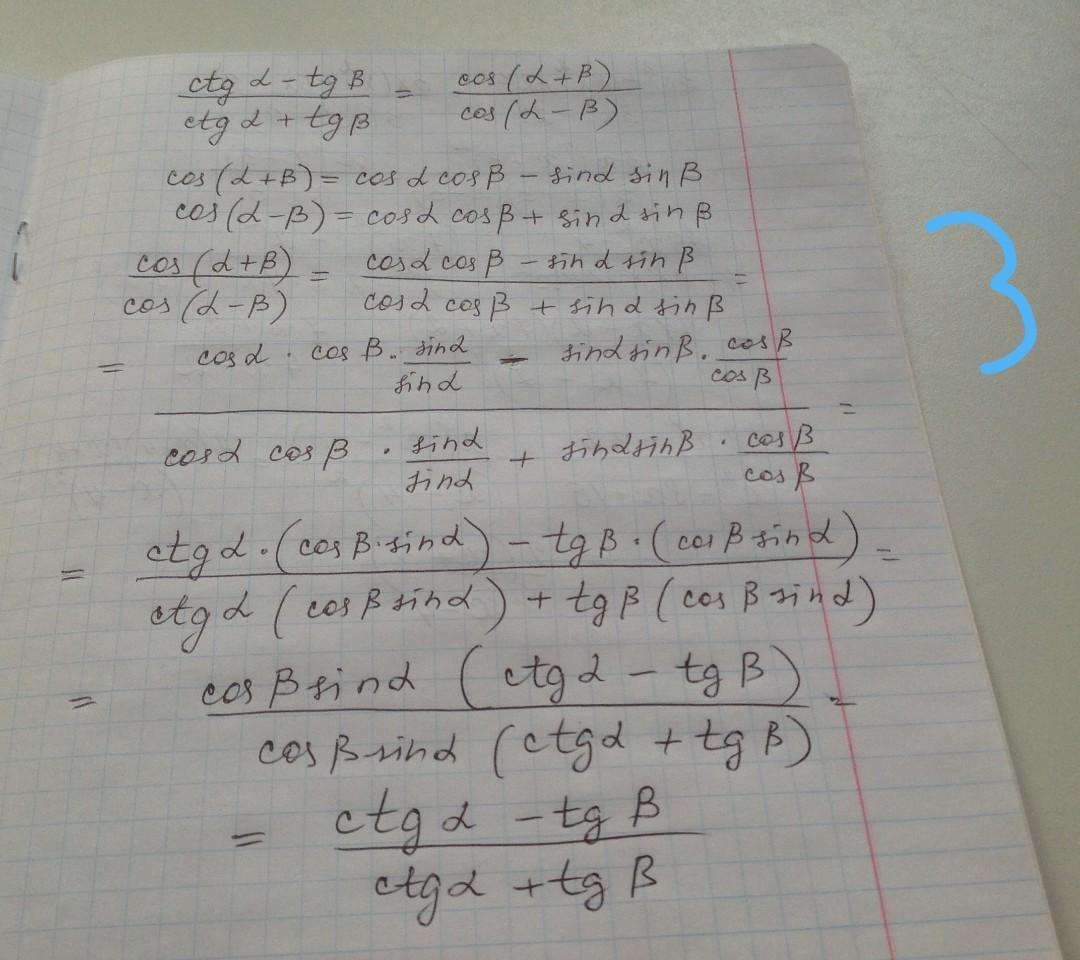 (ctg α - tg β)/(ctg α + tg β) = cos(α + β)/cos(α - β)
cos(α + β) = cos α cos β - sin α sin β
cos(α - β) = cos α cos β + sin α sin β
cos(α + β)/cos(α - β) = (cos α cos β - sin α sin β)/(cos α cos β + sin α sin β) =
= (cos α · cos β · sin α/sin α - sin α sin β · cos β/cos β)/(cos α cos β · sin α/sin α + sin α sin β · cos β/cos β) =
= (ctg α · (cos β · sin α) - tg β · (cos β sin α))/(ctg α (cos β sin α) + tg β (cos β sin α)) =
= (cos β sin α (ctg α - tg β))/(cos β sin α (ctg α + tg β)) =
= (ctg α - tg β)/(ctg α + tg β)
3